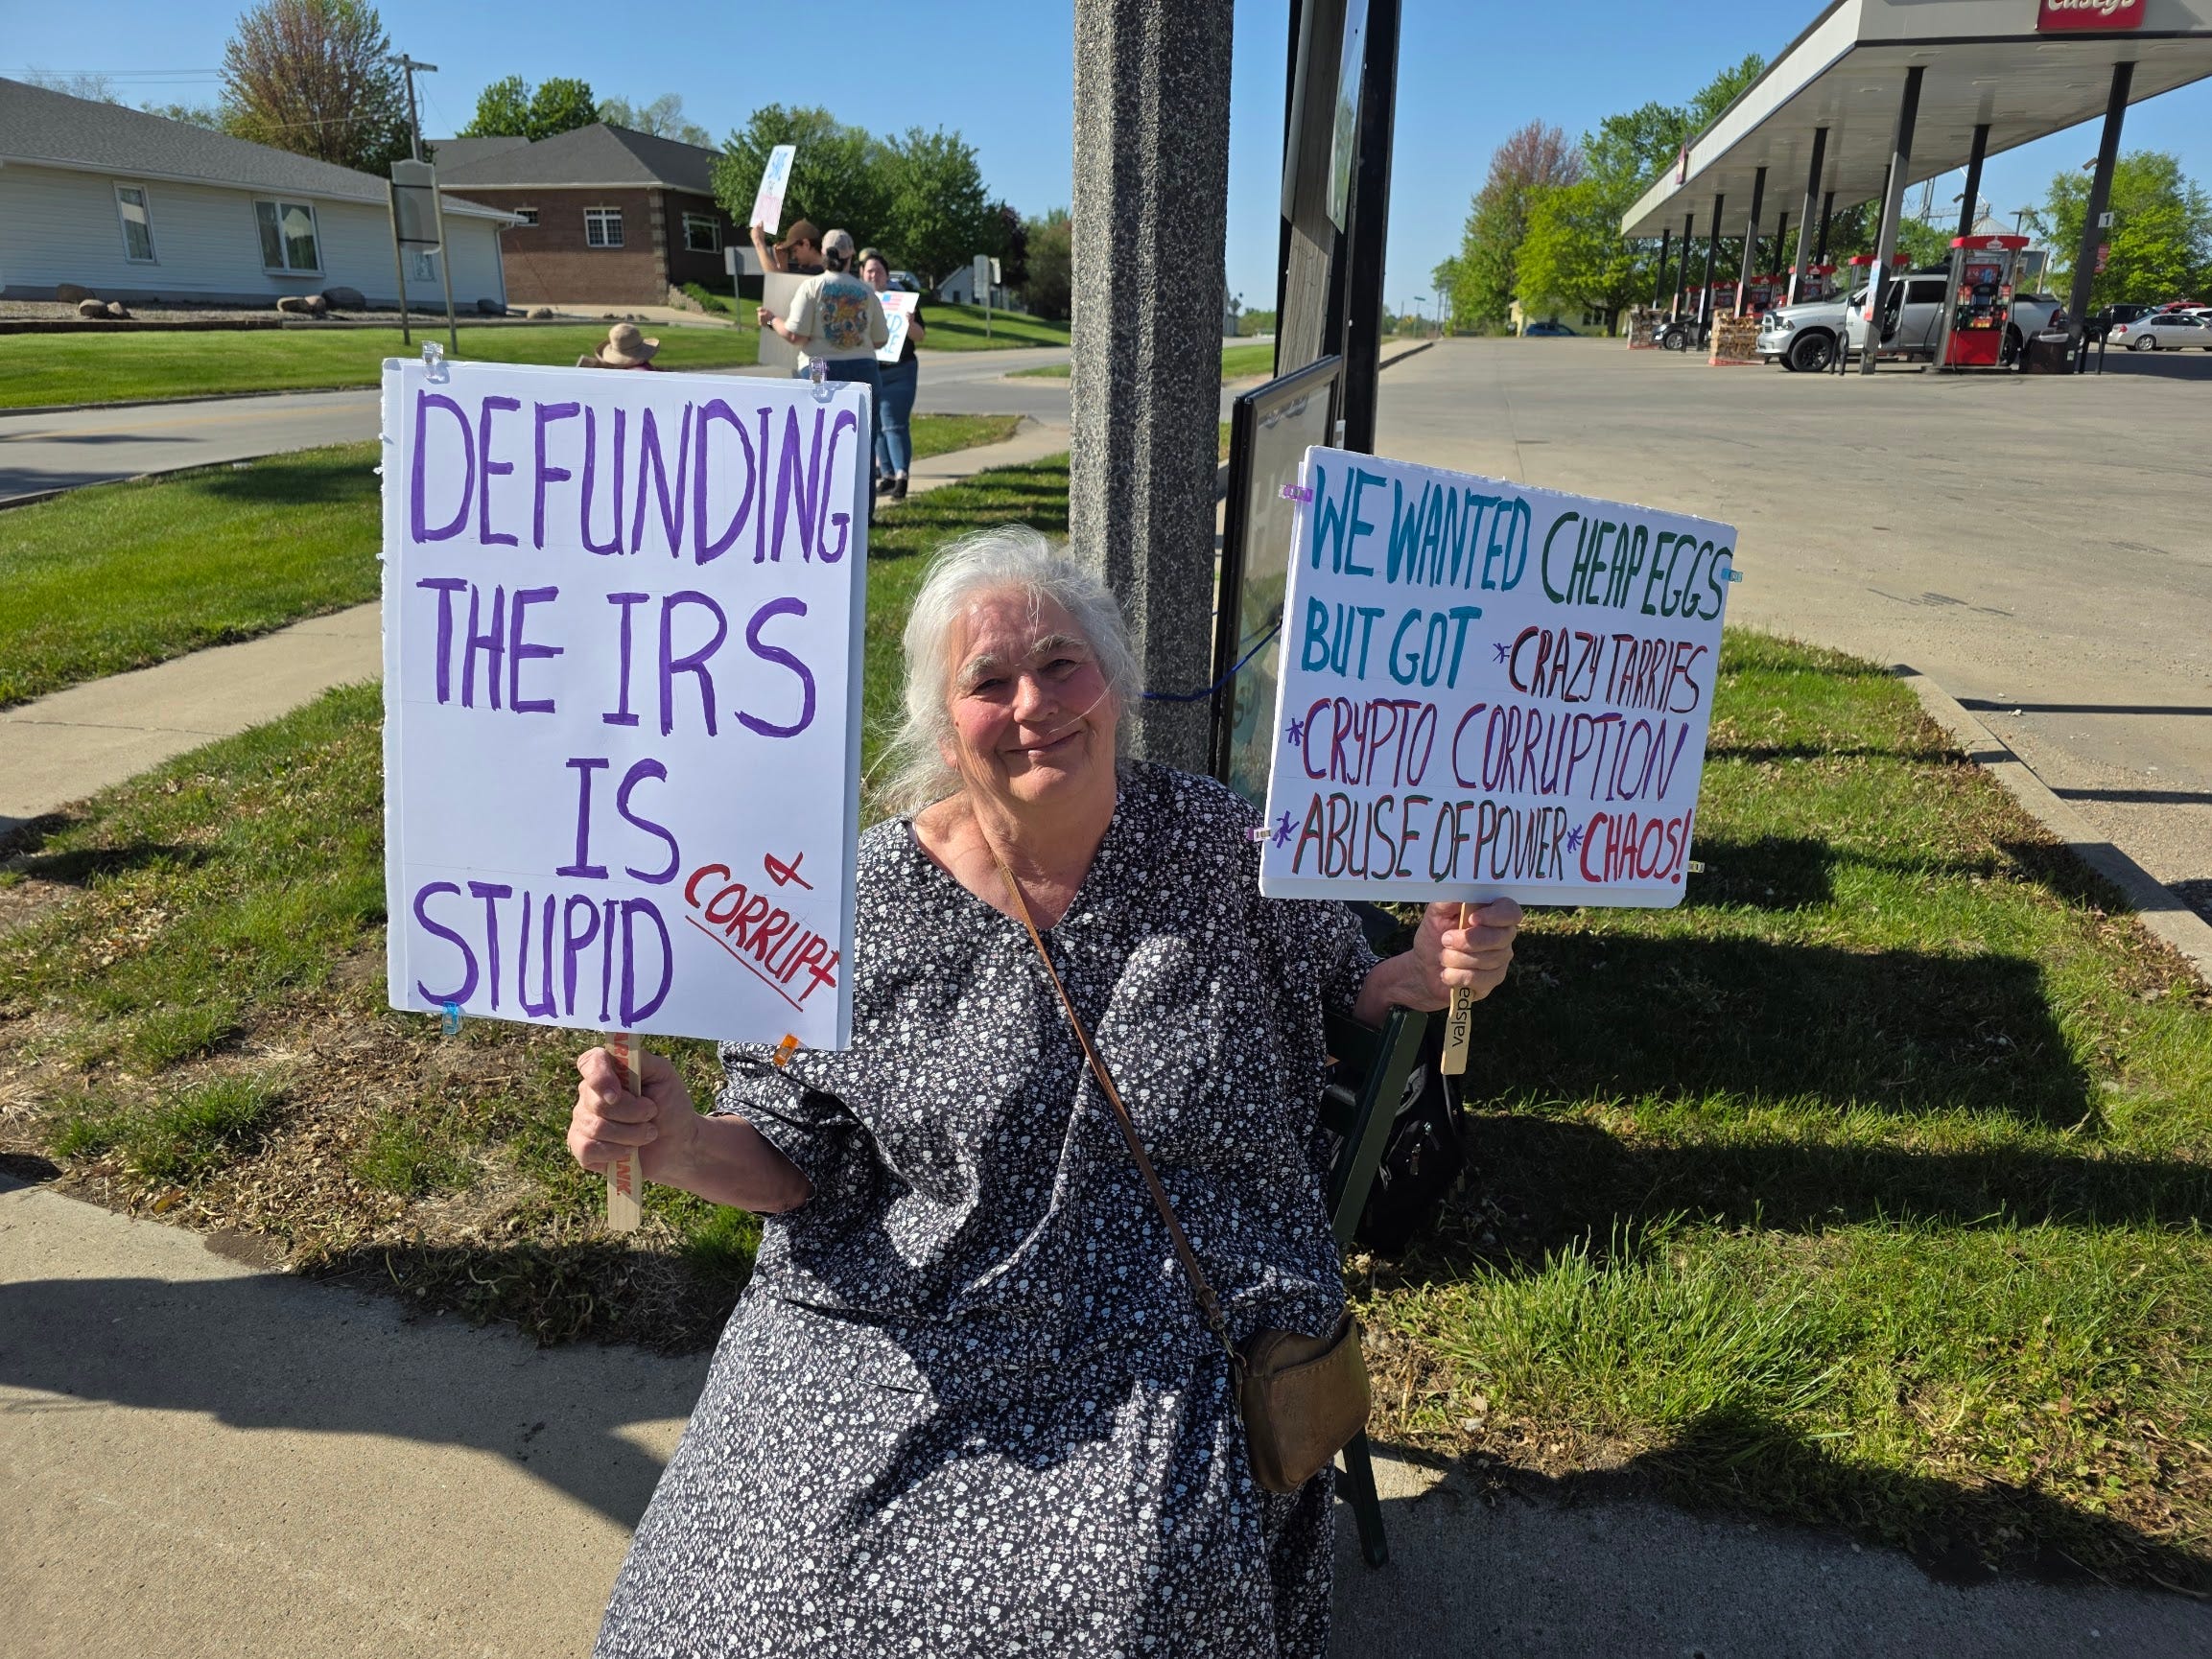 Casey's
DEFUNDING
THE IRS
IS
STUPID
&
CORRUPT
WE WANTED CHEAP EGGS
BUT GOT *CRAZY TARRIFS
*CRYPTO CORRUPTION
*ABUSE OF POWER *CHAOS!
valspa
1